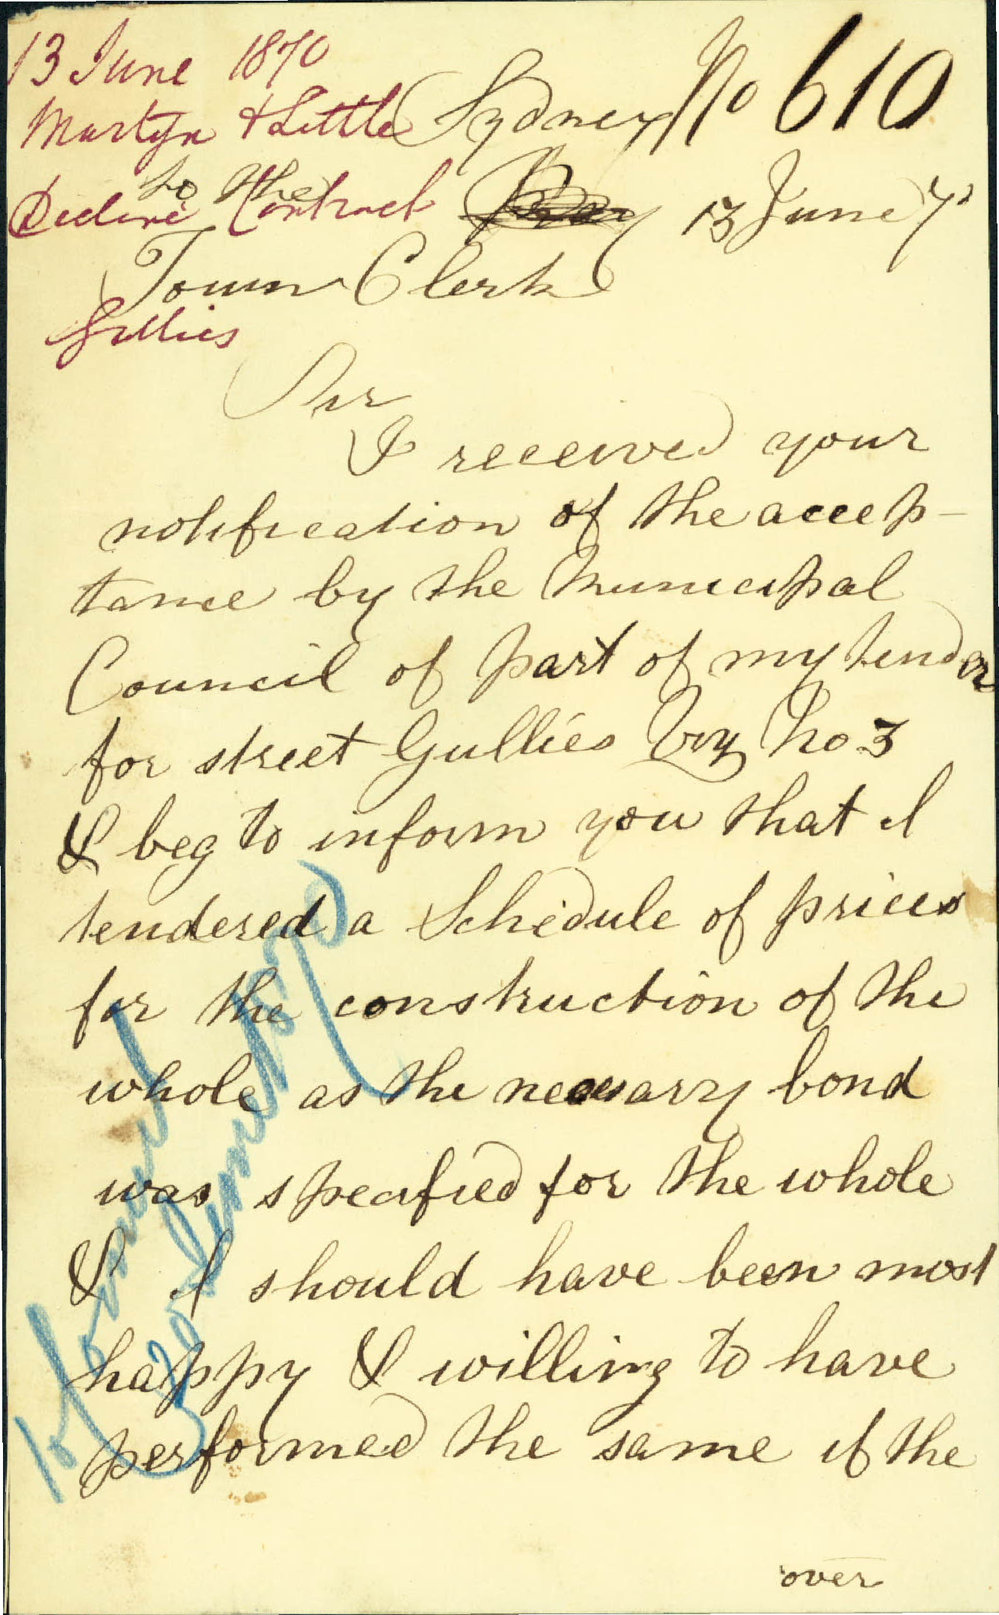 13 June 1870
Martyn & Little
Sydney No 610
to the
Decline Contract 13 June 70
Town Clerk
Gullies
Sir
I received your
notification of the accep-
tance by the Municipal
Council of part of my tender
for street Gullies Viz No 3
& beg to inform you that I
tendered a Schedule of prices
for the construction of the
whole as the necessary bond
was specified for the whole
& I should have been most
happy & willing to have
performed the same if the
over
20 June 1870